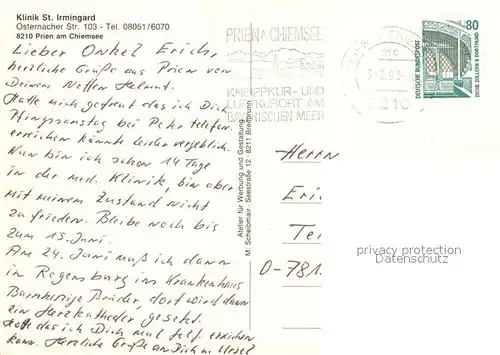 Klinik St. Irmingard
Osternacher Str. 103 - Tel. 08051/6070
8210 Prien am Chiemsee
Lieber Onkel Erich,
herzliche Grüße aus Prien von
Deinem Neffen Helmut.
Hatte mich gefreut das ich Dich
Pfingsanstag bei Peter telefon.
erreichen könnte leider vergeblich.
Nun bin ich schon 14 Tage
in der med. Klinik, bin aber
mit meinem Zustand nicht
zufrieden. Bleibe noch bis
zum 15. Juni.
Am 24. Juni muß ich dann
in Regensburg ins Krankenhaus
Barmherzige Brüder, dort wird dann
ein Herzkatheder gesetzt.
Hoffe das ich Dich mal telf. erreichen
kann. Herzliche Grüße an Dich u. Ursel
Atelier für Werbung und Gestaltung
M. Scheibmair · Seestraße 12 · 8211 Breitbrunn
PRIEN A CHIEMSEE
KNEIPPKUR- UND
LUFTKURORT AM
BAYERISCHEN MEER
mc
8210
80
DEUTSCHE BUNDESPOST
ZECHE ZOLLERN II DORTMUND
Herrn
Eric
Te
D-781
privacy protection
Datenschutz